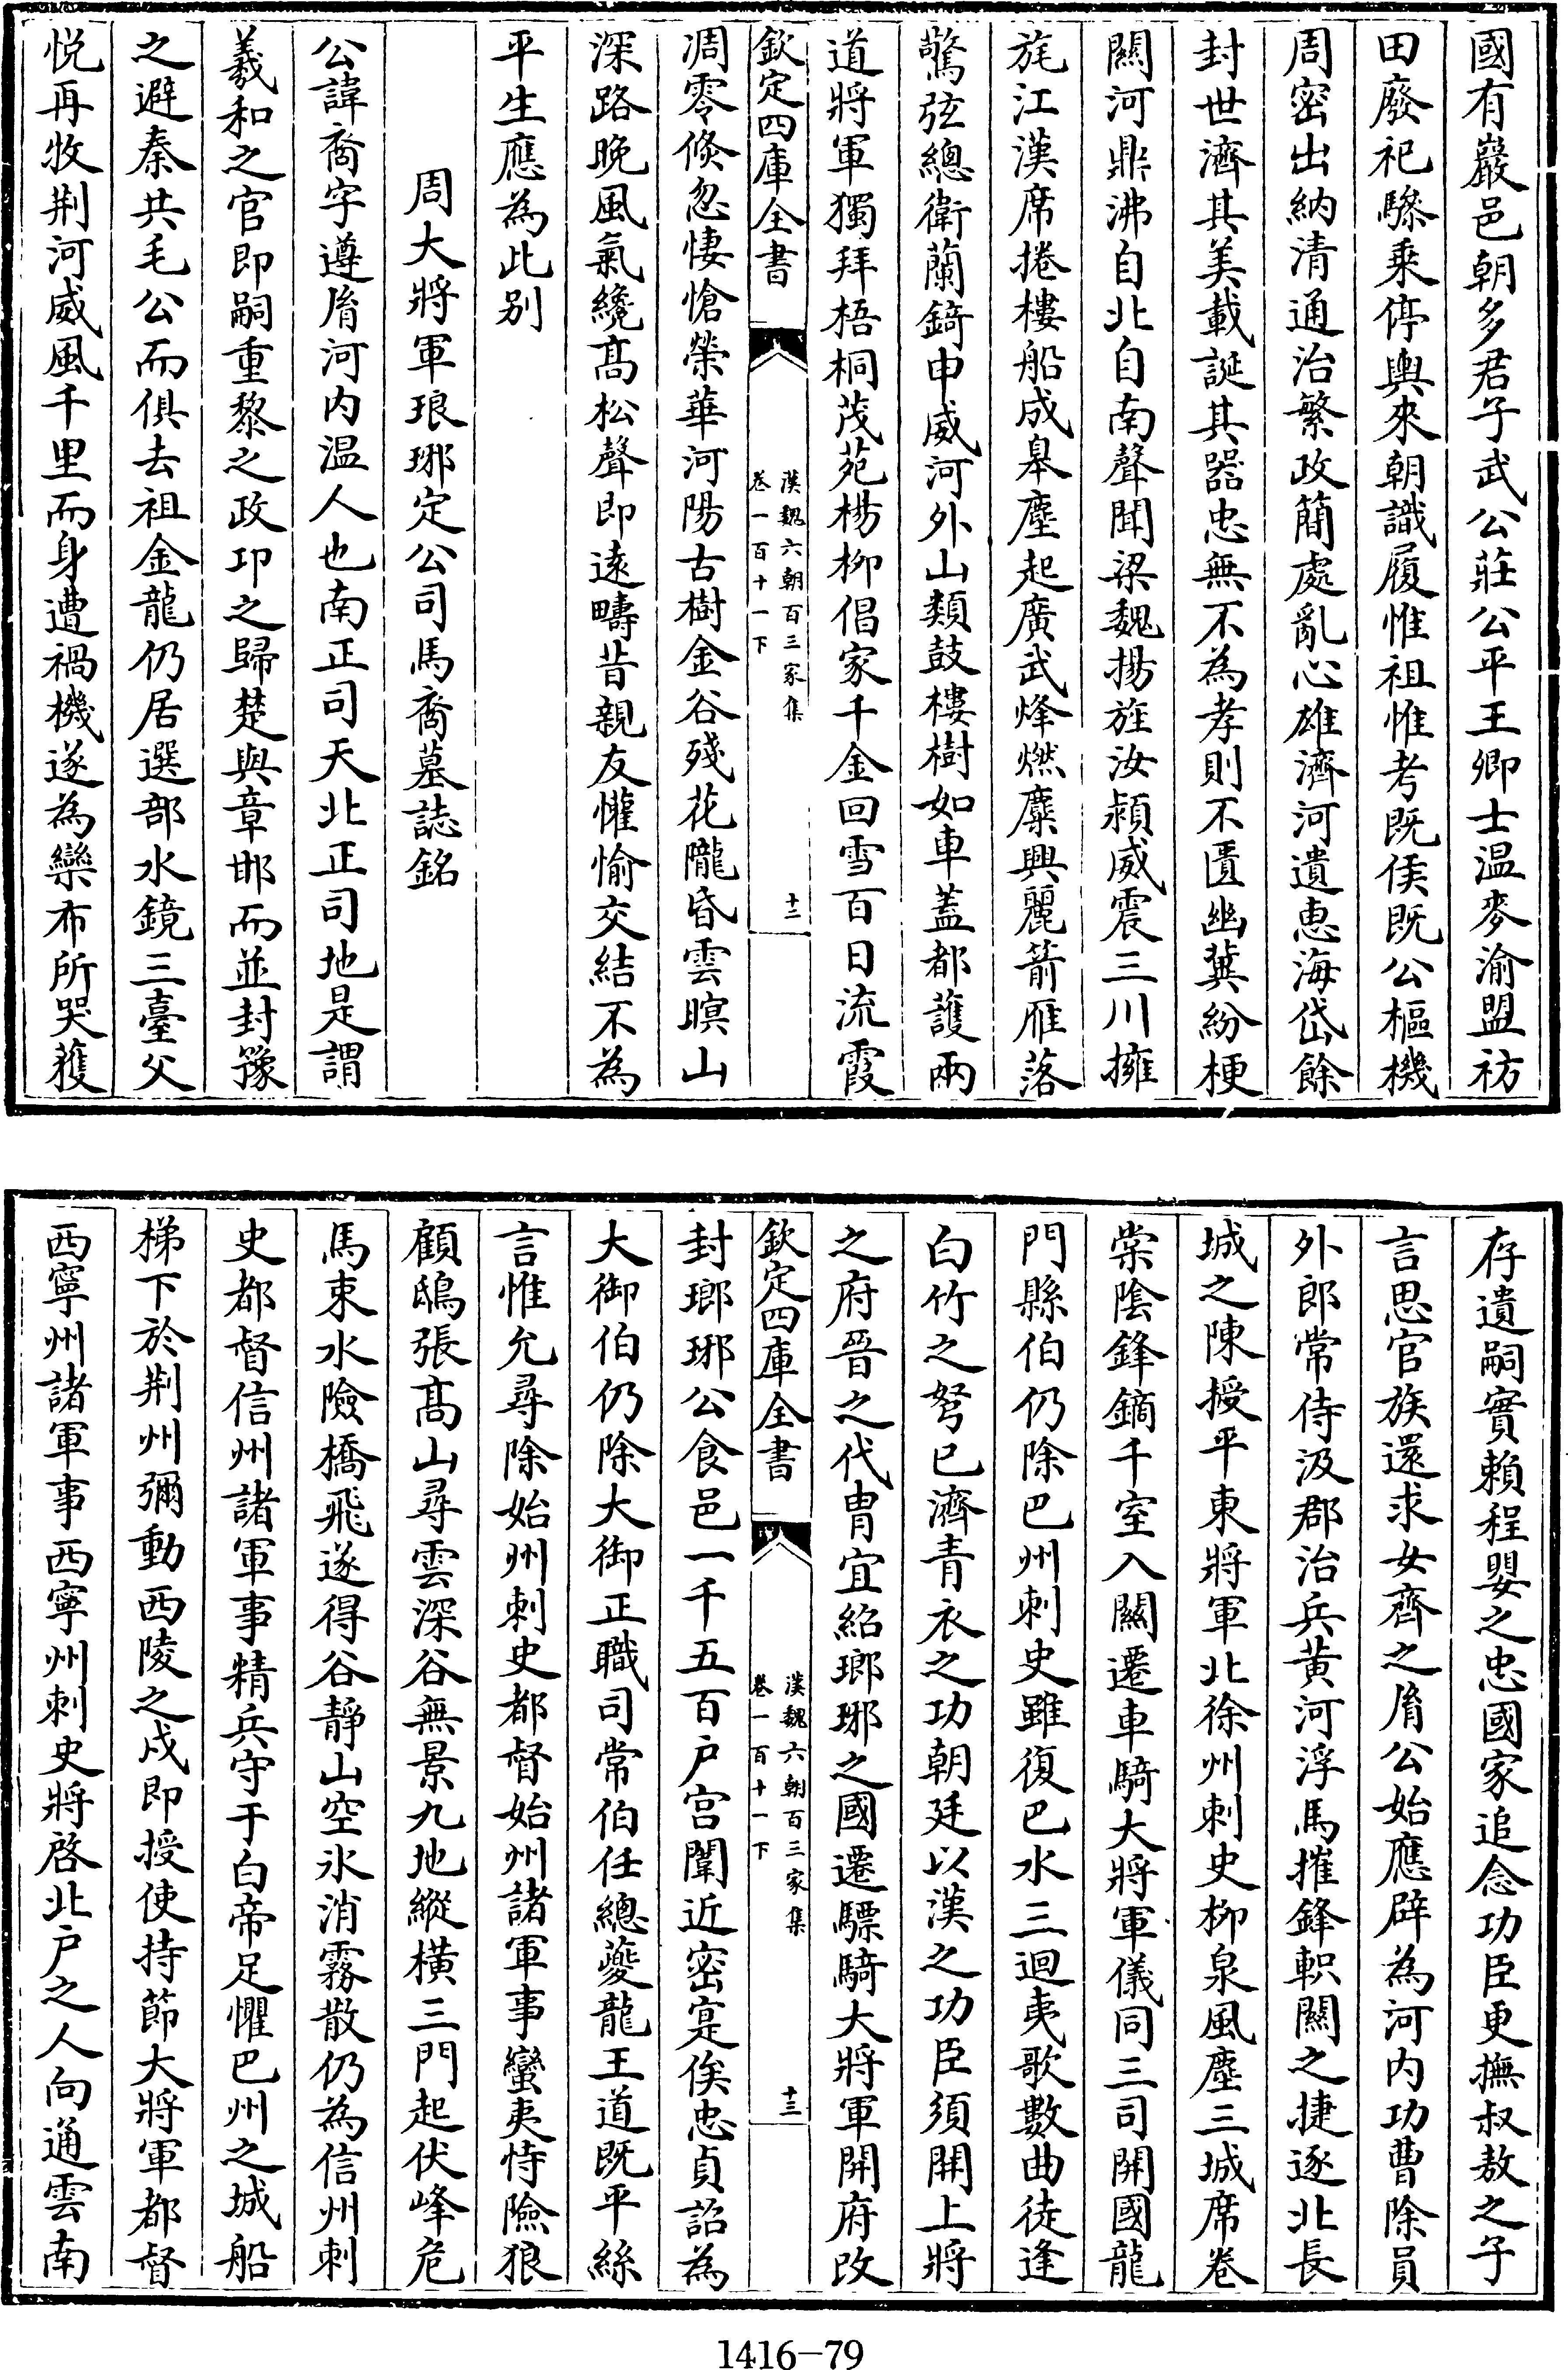 國有巖邑朝多君子武公莊公平王卿士温麥渝盟祊
田廢祀驂乘停輿來朝識履惟祖惟考既侯既公樞機
周密出納清通治繁政簡處亂心雄濟河遺惠海岱餘
封世濟其美載誕其器忠無不為孝則不匱幽冀紛梗
闗河鼎沸自北自南聲聞梁魏揚旌汝潁威震三川擁
旄江漢席捲樓船成皋塵起廣武烽燃麋興麗箭雁落
驚弦總衛蘭錡申威河外山類鼓樓樹如車蓋都護兩
道將軍獨拜梧桐茂苑楊柳倡家千金回雪百日流霞
欽定四庫全書
漢魏六朝百三家集
卷一百十一下
十二
凋零倏忽悽愴榮華河陽古樹金谷殘花隴昏雲暝山
深路晚風氣纔髙松聲即逺疇昔親友懽愉交結不為
平生應為此别
周大將軍琅琊定公司馬裔墓誌銘
公諱裔字遵𦙍河内温人也南正司天北正司地是謂
羲和之官即嗣重黎之政卭之歸楚與章邯而並封豫
之避秦共毛公而俱去祖金龍仍居選部水鏡三臺父
悦再牧荆河威風千里而身遭禍機遂為欒布所哭䕶
存遺嗣實賴程嬰之忠國家追念功臣更撫叔敖之子
言思官族還求女齊之𦙍公始應辟為河内功曹除員
外郎常侍汲郡治兵黄河浮馬摧鋒軹關之捷逐北長
城之陳授平東將軍北徐州刺史柳泉風塵三城席卷
棠陰鋒鏑千室入關遷車騎大將軍儀同三司開國龍
門縣伯仍除巴州刺史雖復巴水三迴夷歌數曲徒逢
白竹之弩已濟青衣之功朝廷以漢之功臣須開上將
之府晉之代胄宜紹瑯琊之國遷驃騎大將軍開府改
欽定四庫全書
漢魏六朝百三家集
卷一百十一下
十三
封瑯琊公食邑一千五百户宫闈近密寔俟忠貞詔為
大御伯仍除大御正職司常伯任總夔龍王道既平絲
言惟允尋除始州刺史都督始州諸軍事蠻夷恃險狼
顧鴟張髙山尋雲深谷無景九地縱横三門起伏峰危
馬束水險橋飛遂得谷靜山空氷消霧散仍為信州刺
史都督信州諸軍事精兵守于白帝足懼巴州之城船
梯下於荆州彌動西陵之戍即授使持節大將軍都督
西寧州諸軍事西寧州刺史將啓北户之人向通雲南
1416-79